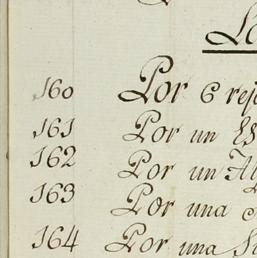 160 Por 6 rej
161 Por un
162 Por un Al
163 Por una
164 Por una